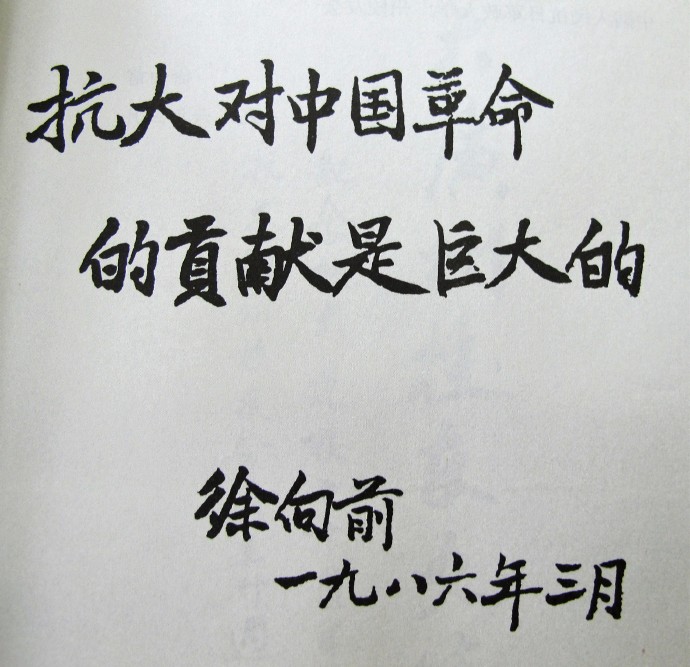 抗大对中国革命
的貢献是巨大的
徐向前
一九八六年三月